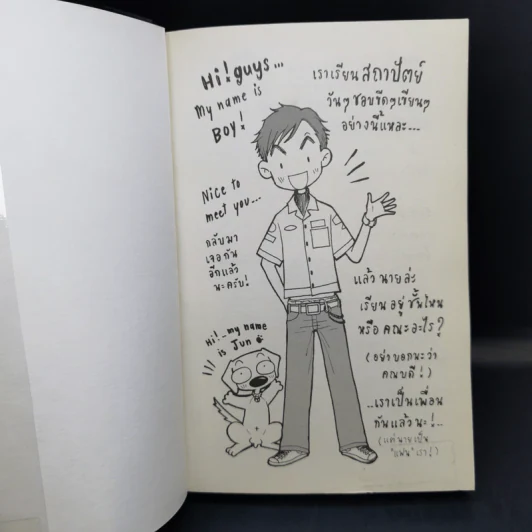 Hi! guys...
My name is
BOY!
เราเรียน สถาปัตย์
วันๆ ชอบขีดๆเขียนๆ
อย่างนี้แหละ...
Nice to
meet you...
กลับมา
เจอกัน
อีกแล้ว
นะครับ!
Hi!..my name
is Jun
แล้ว นายล่ะ
เรียน อยู่ ชั้นไหน
หรือ คณะอะไร?
(อย่าบอกนะว่า
คณบดี!)
..เราเป็นเพื่อน
กันแล้วนะ!..
(แต่นายเป็น
"แฟน" เรา!)